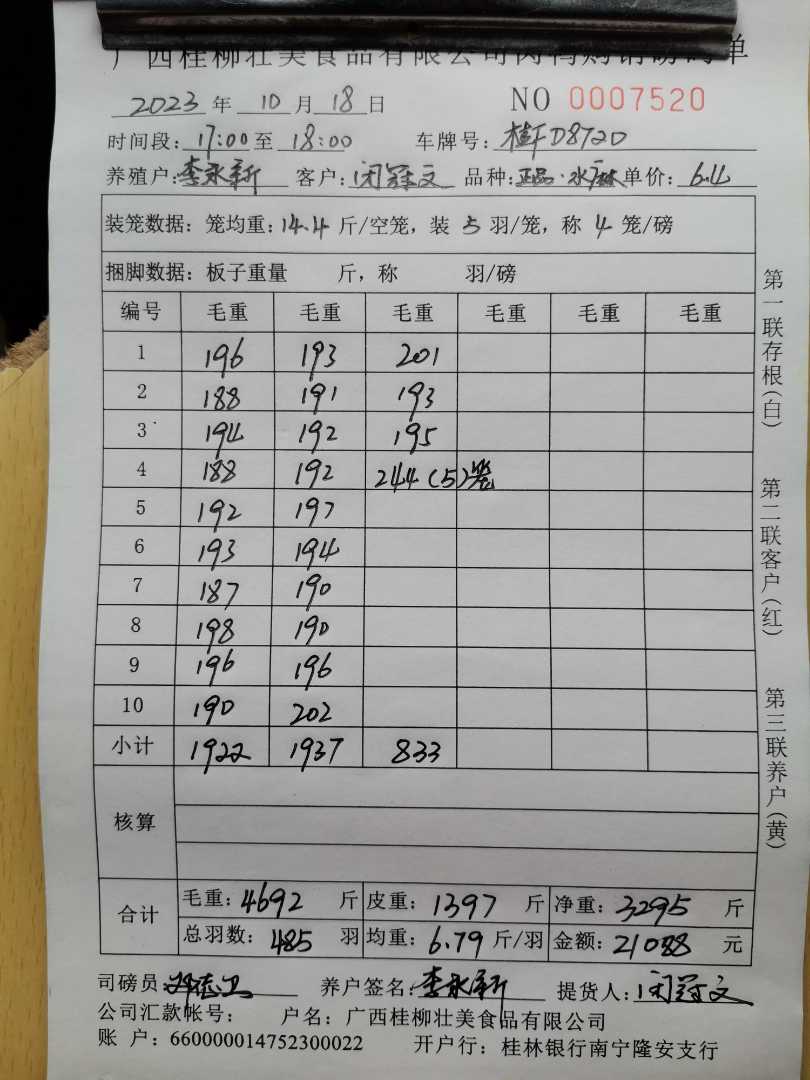 广西桂柳壮美食品有限公司肉鸭购销磅码单
2023 年 10 月 18 日 NO 0007520
时间段: 17:00 至 18:00 车牌号: D8720
养殖户: 李永新 客户: 闭冠文 品种: 正品·水 单价: 6.4
装笼数据: 笼均重: 14.4 斤/空笼, 装 5 羽/笼, 称 4 笼/磅
捆脚数据: 板子重量 斤, 称 羽/磅
编号 毛重 毛重 毛重 毛重 毛重 毛重
1 196 193 201
2 188 191 193
3 194 192 195
4 188 192 244(5)笼
5 192 197
6 193 194
7 187 190
8 198 190
9 196 196
10 190 202
小计 1922 1937 833
核算
合计 毛重: 4692 斤 皮重: 1397 斤 净重: 3295 斤
总羽数: 485 羽 均重: 6.79 斤/羽 金额: 21088 元
司磅员: 养户签名: 李永新 提货人: 闭冠文
公司汇款帐号: 户名: 广西桂柳壮美食品有限公司
账 户: 660000014752300022 开户行: 桂林银行南宁隆安支行
第一联存根(白)
第二联客户(红)
第三联养户(黄)